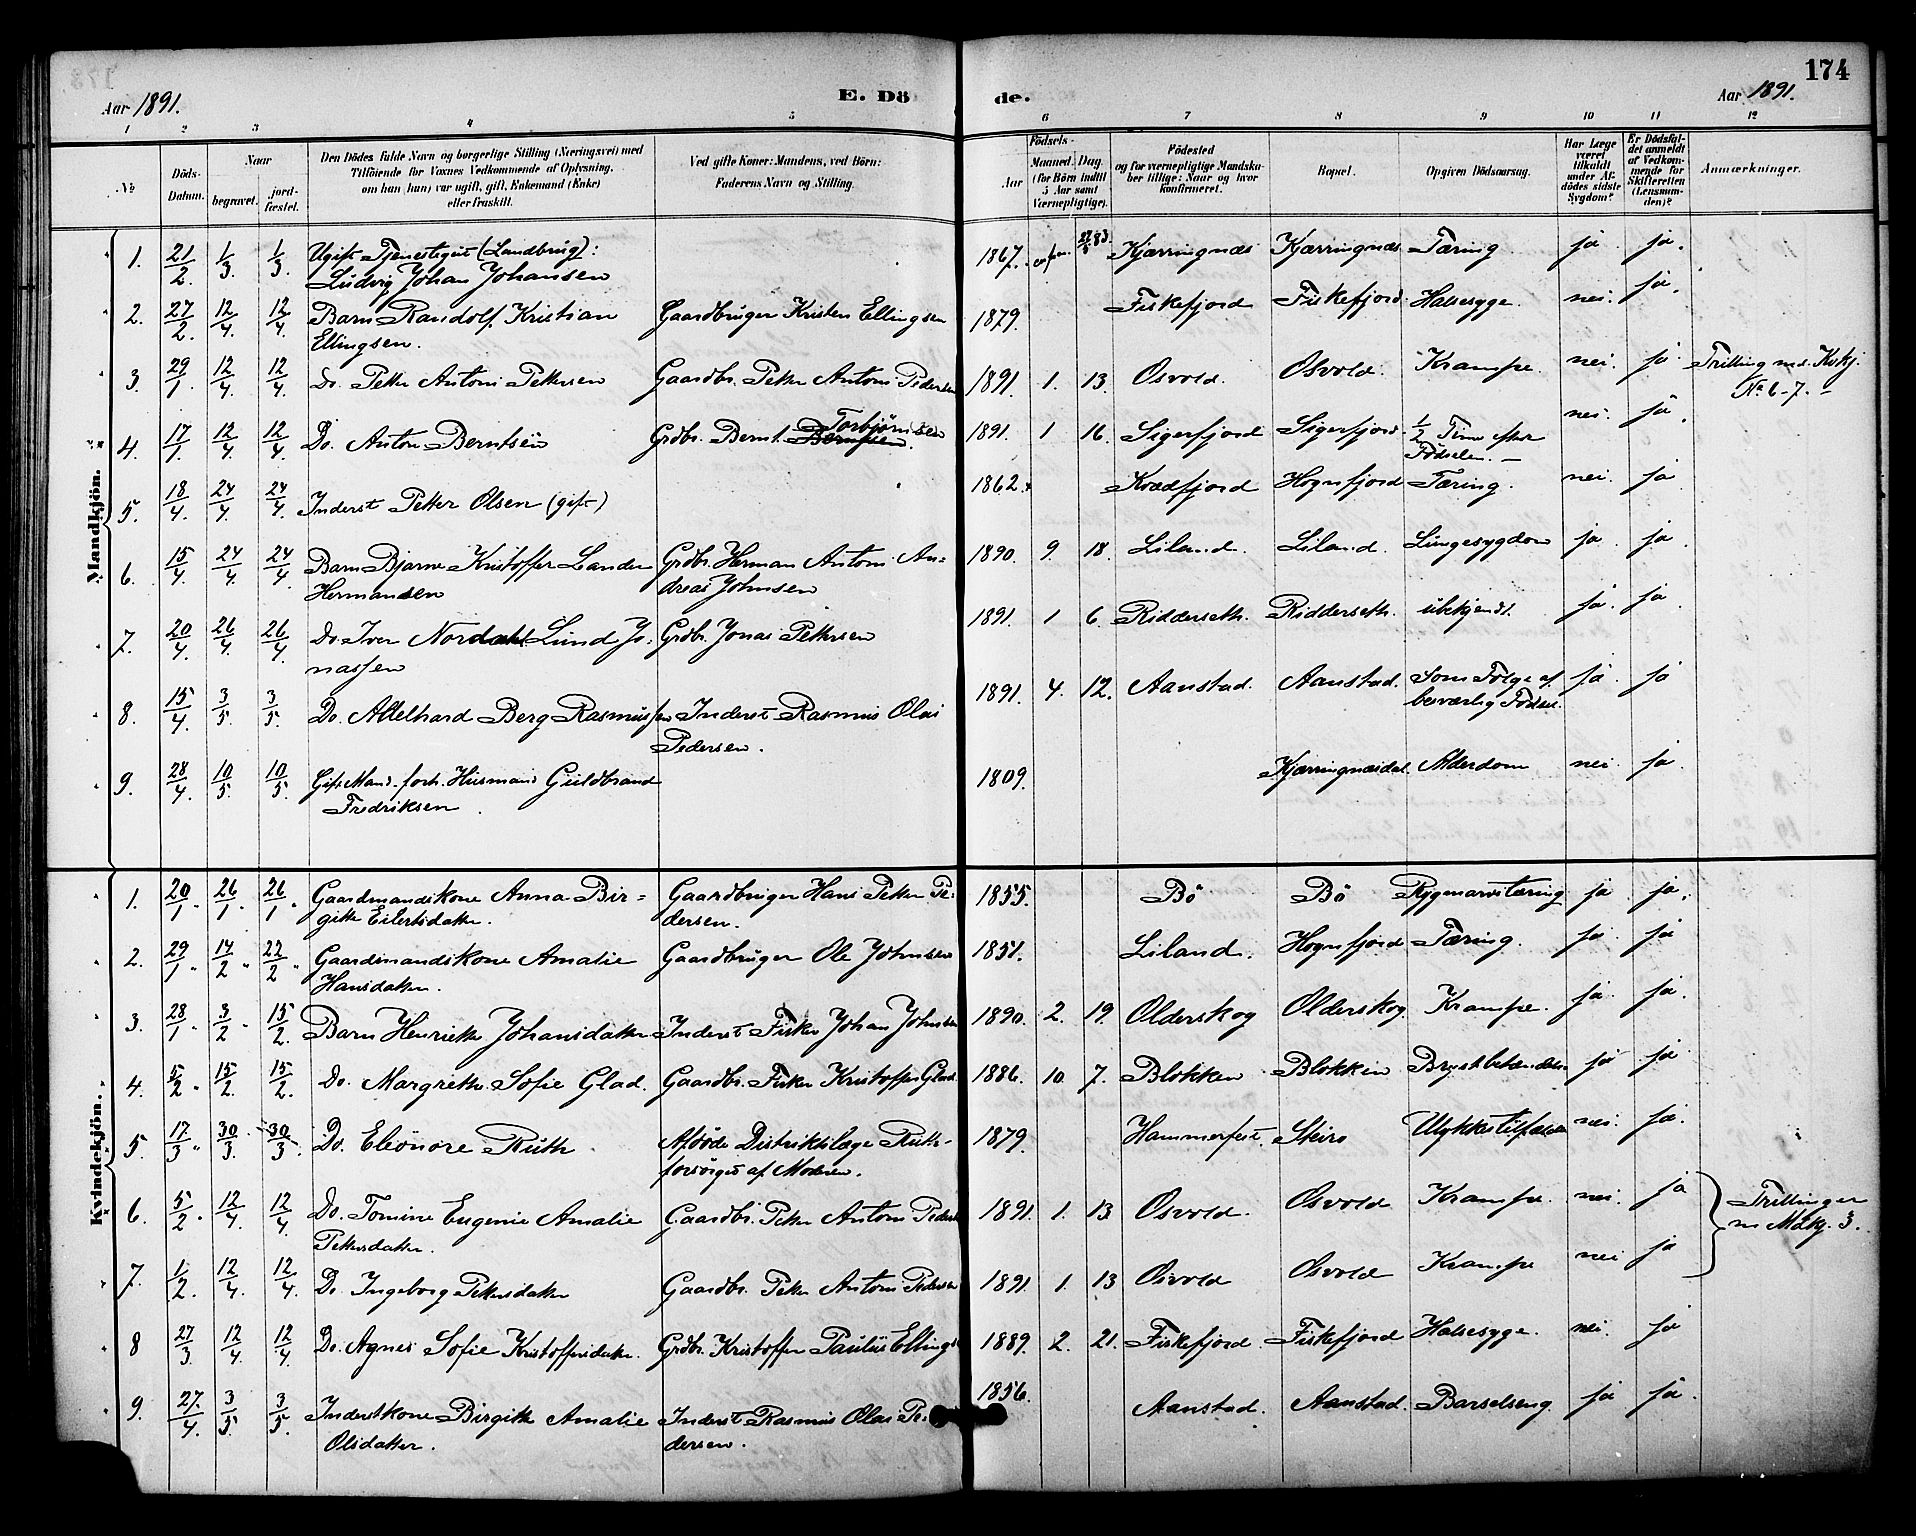 174
Aar 1891. E. Dö de. Aar 1891.
1 2 3 4 5 6 7 8 9 10 11 12
No Döds-Datum. Naar begravet. jord-fæstet. Den Dödes fulde Navn og borgerlige Stilling (Næringsvei) med Tilföiende for Voxnes Vedkommende af Oplysning, om han (hun) var ugift, gift, Enkemand (Enke) eller fraskilt. Ved gifte Koner: Mandens, ved Börn: Faderens Navn og Stilling. Födsels- Aar Maaned. Dag. (for Börn indtil 5 Aar samt Værnepligtige). Födested og for værnepligtige Mandskaber tillige: Naar og hvor konfirmeret. Bopæl. Opgiven Dödsaarsag. Har Læge været tilkaldt under Afdödes sidste Sygdom? Er Dödsfaldet anmeldt af Vedkommende for Skifteretten (Lensmanden)? Anmærkninger.
Mandkjön.
1. 21/2. 1/3. 1/3. Ugift Tjenestegut (Landbrug): 1867. Kjærringnæs Kjærringnæs Tæring ja. ja.
Ludvig Johan Johansen
2. 27/2. 12/4. 12/4. Barn Randolf Kristian Gaardbruger Kristen Ellingsen 1879. Fiskefjord Fiskefjord. Halsesyge. nei. ja.
Ellingsen.
3. 29/1. 12/4. 12/4. Do. Petter Antoni Pettersen Gaardbr. Petter Antoni Pedersen 1891. 1. 13. Osvold. Osvold. Krampe. nei. ja Trilling med Kvkj.
No 6-7.
4. 17/1. 12/4. 12/4. Do. Anton Berntsen Grdbr. Bernt Berntsen Torbjørnsen 1891. 1 16. Sigerfjord Sigerfjord 1/2 Time efter nei. ja.
Fødselen.
5. 18/4. 24/4. 24/4. Inderst Petter Olsen (gift) 1862. Kvædfjord Hognfjord Tæring. nei. ja
6. 15/4. 24/4 24/4 Barn Bjarne Kristoffer Lander Grdbr. Herman Antoni An- 1890. 9 18. Liland. Liland. Lungesygdom ja. ja.
Hermansen dreas Johnsen
7. 20/4 26/4. 26/4. Do. Iver Nordahl Lund Jo- Grdbr. Jonas Pettersen 1891. 1 6. Ridderseth. Ridderseth. ubekjendt. ja. ja.
nassen
8. 15/4. 3/5. 3/5. Do. Adelhard Berg Rasmussen Inderst Rasmus Olai 1891. 4. 12. Aanstad. Aanstad. Som Følge af ja. ja
Pedersen. besværlig Fødsel.
9. 28/4. 10/5. 10/5. Gift Mand. forh. Husmand Guldbrand 1809. Kjærringnæsdal. Alderdom nei ja.
Fredriksen.
Kvindekjön.
1. 20/1. 26/1. 26/1. Gaardmandskone Anna Bir- Gaardbruger Hans Petter Pe- 1855. Bö Bö Rygmarvstæring ja ja.
gitte Eilertsdatter. dersen.
2. 29/1. 14/2. 22/2. Gaardmandskone Amalie Gaardbruger Ole Johnsen 1851. Liland. Hognfjord Tæring. ja. ja
Hansdatter.
3. 28/1. 3/2. 15/2. Barn Henriette Johansdatter Inderst Fisker Johan Johnsen 1890. 2. 19. Olderskog Olderskog. Krampe. ja. ja.
4. 5/2. 15/2. 15/2. Do. Margrethe Sofie Glad. Gaardbr. Fisker Kristoffer Glad. 1886. 10. 7. Blokken Blokken Brystbetændelse ja ja.
5. 17/3. 30/3. 30/3. Do. Eleonore Ruth. Afdøde Distriktslæge Ruth- 1879. Hammerfest. Steiro Ulykkestilfælde nei. ja.
forsörget af Moderen.
6. 5/2. 12/4. 12/4. Do. Tomine Eugenie Amalie Gaardbr. Petter Antoni Peders 1891. 1. 13 Osvold. Osvold Krampe. nei. ja Trillinger
Pettersdatter. m Mdkj. 3.
7. 1/2. 12/4. 12/4. Do Ingeborg Pettersdatter Gaardbr. Petter Antoni Pedersen 1891. 1. 13 Osvold Osvold Krampe nei ja
8 27/3 12/4. 12/4. Do. Agnes Sofie Kristoffersdatter. Grdbr. Kristoffer Paulus Ellings 1889. 2. 21. Fiskefjord. Fiskefjord Halsesyge. nei. ja
9. 27/4. 3/5. 3/5. Inderstkone Birgitte Amalie Inderst Rasmus Olai Pe- 1856. Aanstad. Aanstad. Barselseng. ja ja.
Olsdatter. dersen.